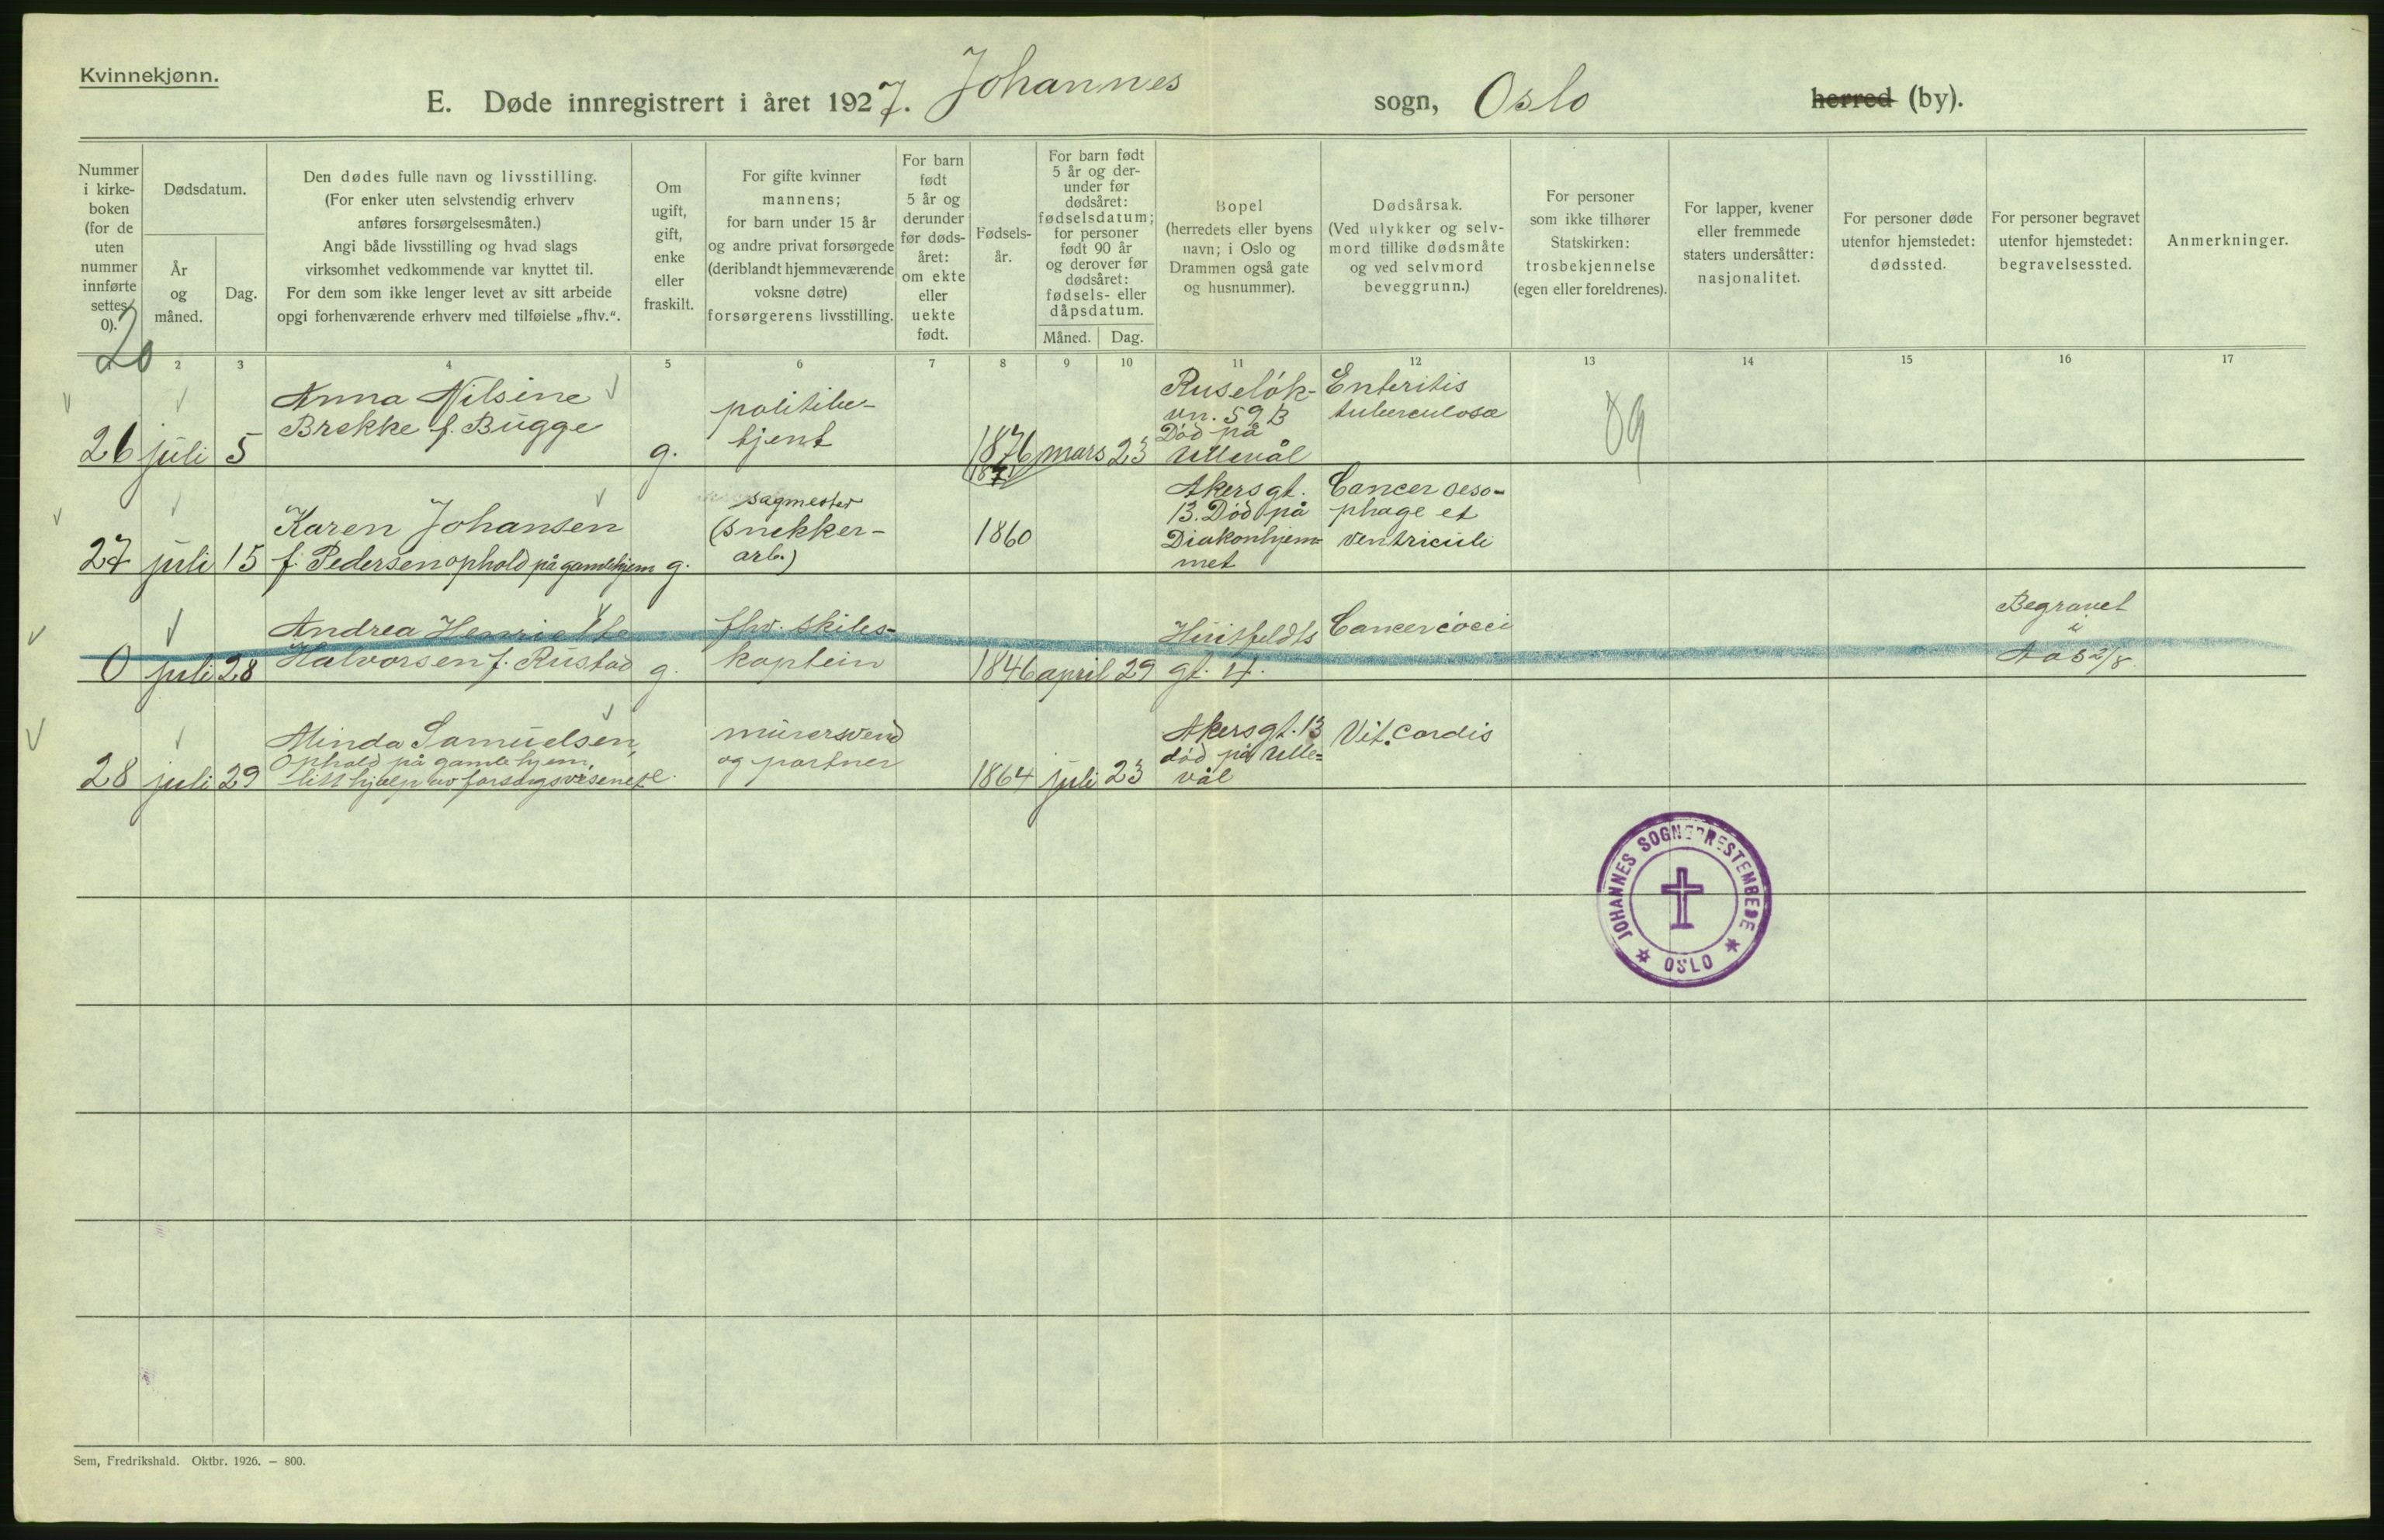 Kvinnekjønn.
E. Døde innregistrert i året 1927. Johannes sogn, Oslo herred (by).
Nummer i kirke- boken (for de uten nummer innførte settes 0).
Dødsdatum.
År og måned.
Dag.
Den dødes fulle navn og livsstilling.
(For enker uten selvstendig erhverv
anføres forsørgelsesmåten.)
Angi både livsstilling og hvad slags
virksomhet vedkommende var knyttet til.
For dem som ikke lenger levet av sitt arbeide
opgi forhenværende erhverv med tilføielse „fhv.“.
Om
ugift,
gift,
enke
eller
fraskilt.
For gifte kvinner
mannens;
for barn under 15 år
og andre privat forsørgede
(deriblandt hjemmeværende
voksne døtre)
forsørgerens livsstilling.
For barn
født
5 år og
derunder
før døds-
året:
om ekte
eller
uekte
født.
Fødsels-
år.
For barn født
5 år og der-
under før
dødsåret:
fødselsdatum;
for personer
født 90 år
og derover før
dødsåret:
fødsels- eller
dåpsdatum.
Måned. Dag.
Bopel
(herredets eller byens
navn; i Oslo og
Drammen også gate
og husnummer).
Dødsårsak.
(Ved ulykker og selv-
mord tillike dødsmåte
og ved selvmord
beveggrunn.)
For personer
som ikke tilhører
Statskirken:
trosbekjennelse
(egen eller foreldrenes).
For lapper, kvener
eller fremmede
staters undersåtter:
nasjonalitet.
For personer døde
utenfor hjemstedet:
dødssted.
For personer begravet
utenfor hjemstedet:
begravelsessted.
Anmerkninger.
20
1 2 3 4 5 6 7 8 9 10 11 12 13 14 15 16 17
26 juli 5
Anna Nilsine
Brekke f. Bugge
g.
politibe-
tjent
1876 mars 23
1871
Ruseløk-
vn. 59 B
Død på
Ullevål
Enteritis
tuberculosa
27 juli 15
Karen Johansen
f. Pedersen ophold på gamlehjem
g.
sagmester
(snekker-
arb.)
1860
Akersgt.
13. Død på
Diakonhjem-
met
Cancer oeso-
phage et
ventriculi
0 juli 28
Andrea Henriette
Halvorsen f. Rustad
g.
fhv. skibs-
kaptein
1846 april 29
Huitfeldts
gt. 4.
Cancer coeci
Begravet
i
Aas 2/8.
28 juli 29
Minda Samuelsen,
Ophold på gamlehjem,
litt hjælp av forsørgsvesenet
e.
murersvend
og portner
1864 juli 23
Akersgt. 13
død på Ulle-
vål
Vit. Cordis
JOHANNES SOGNEPRESTEMBEDE
OSLO
Sem, Fredrikshald. Oktbr. 1926. — 800.